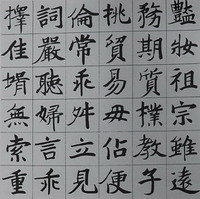 豔妝祖宗雖遠
務期質樸教子
挑貿易毋佔便
倫常乖舛立見
詞嚴聽婦言乖
擇佳婿無索重